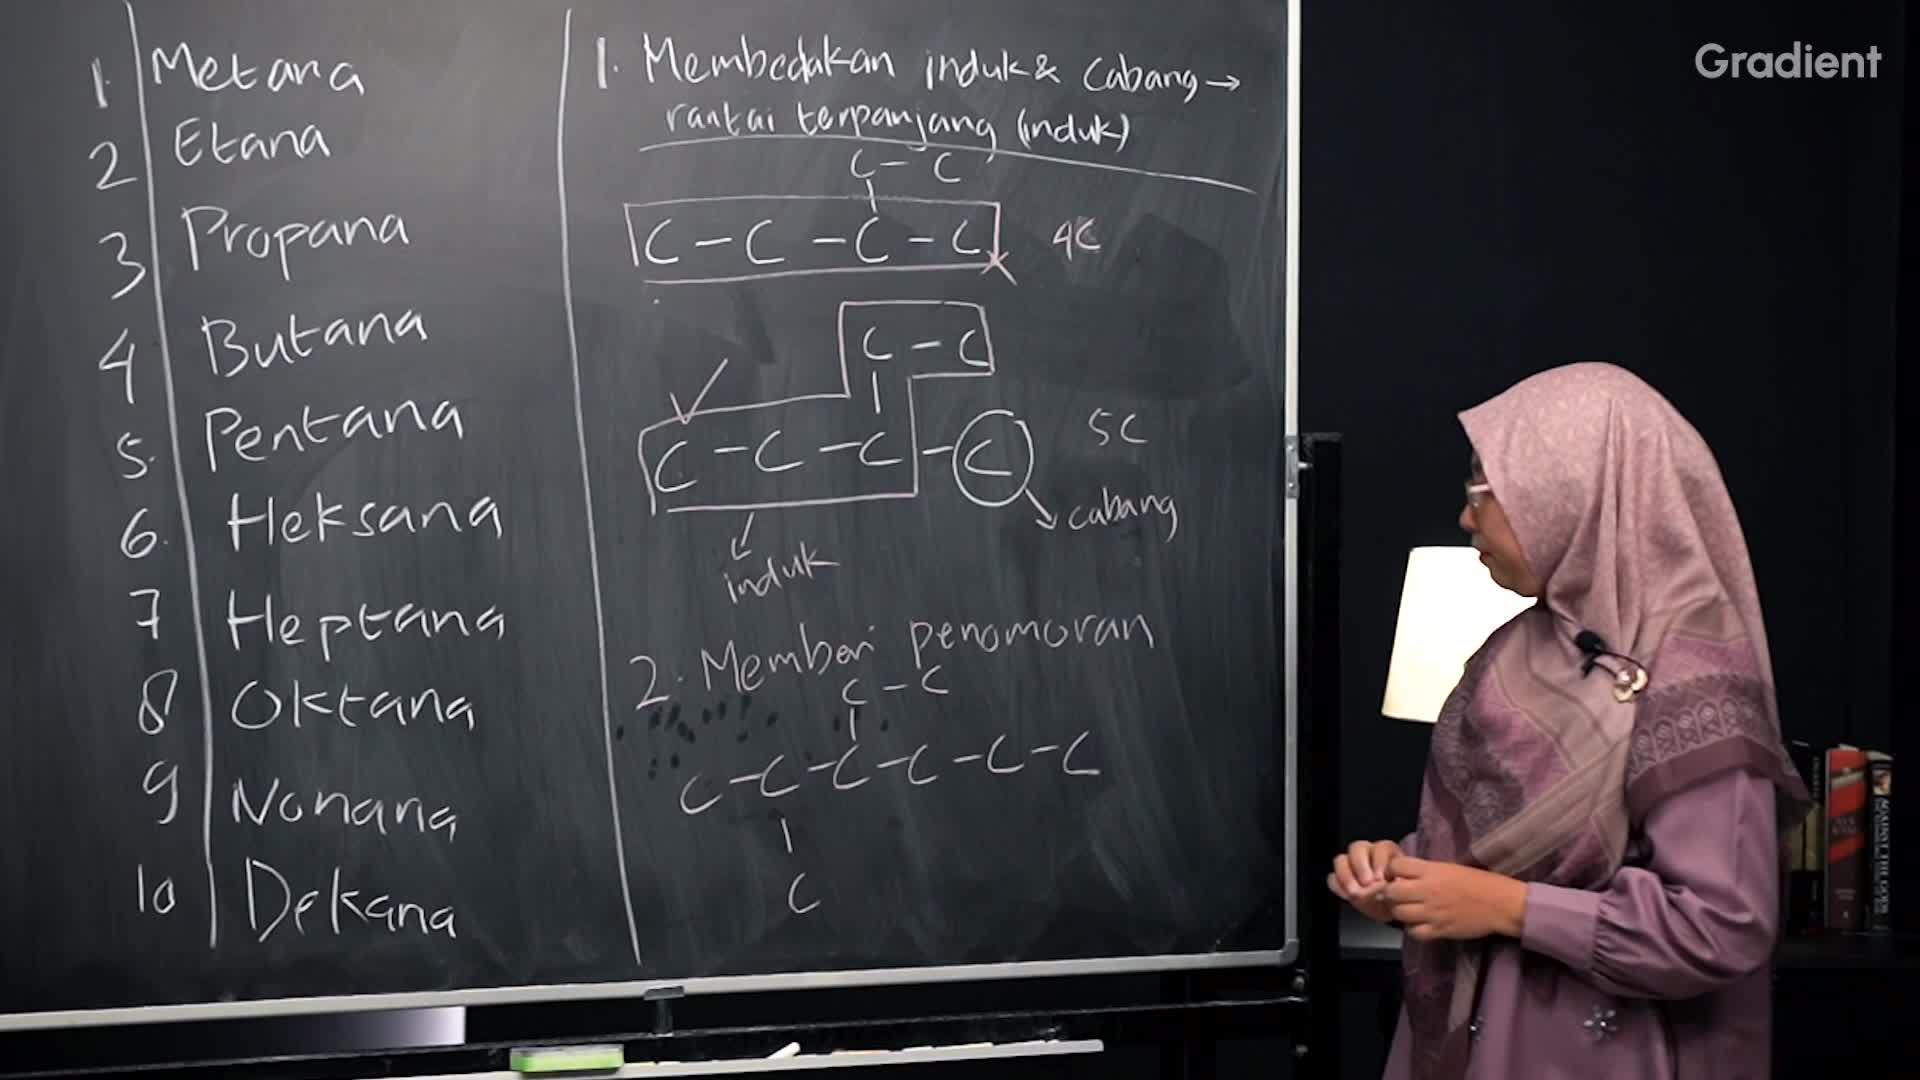 Gradient
1. Metana
2 Etana
3 Propana
4 Butana
5. Pentana
6. Heksana
7 Heptana
8 Oktana
9 Nonana
10 Dekana
1. Membedakan induk & Cabang →
rantai terpanjang (induk)
C - C
C - C - C - C 4C
C - C
C - C - C - C 5C
cabang
induk
2. Memberi penomoran
C - C
C - C - C - C - C - C
C
AGAINST THE GODS